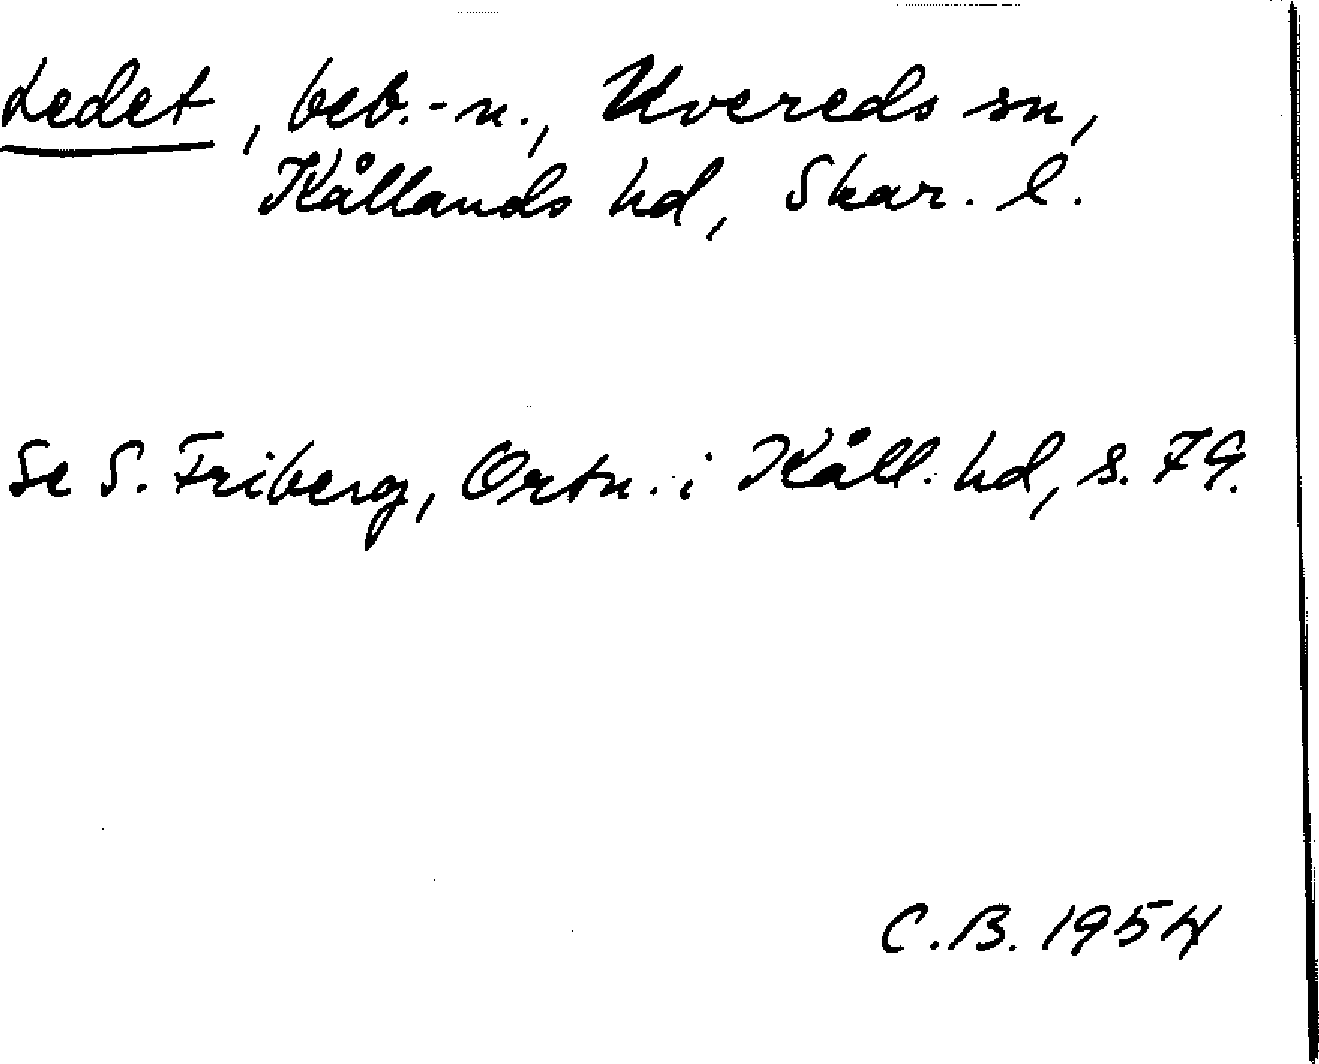 Ledet, beb.-n., Uvereds sn,
Kållands hd, Skar. l.
Se S. Friberg, Ortn. i Kåll. hd, s. 79.
C.B. 1954